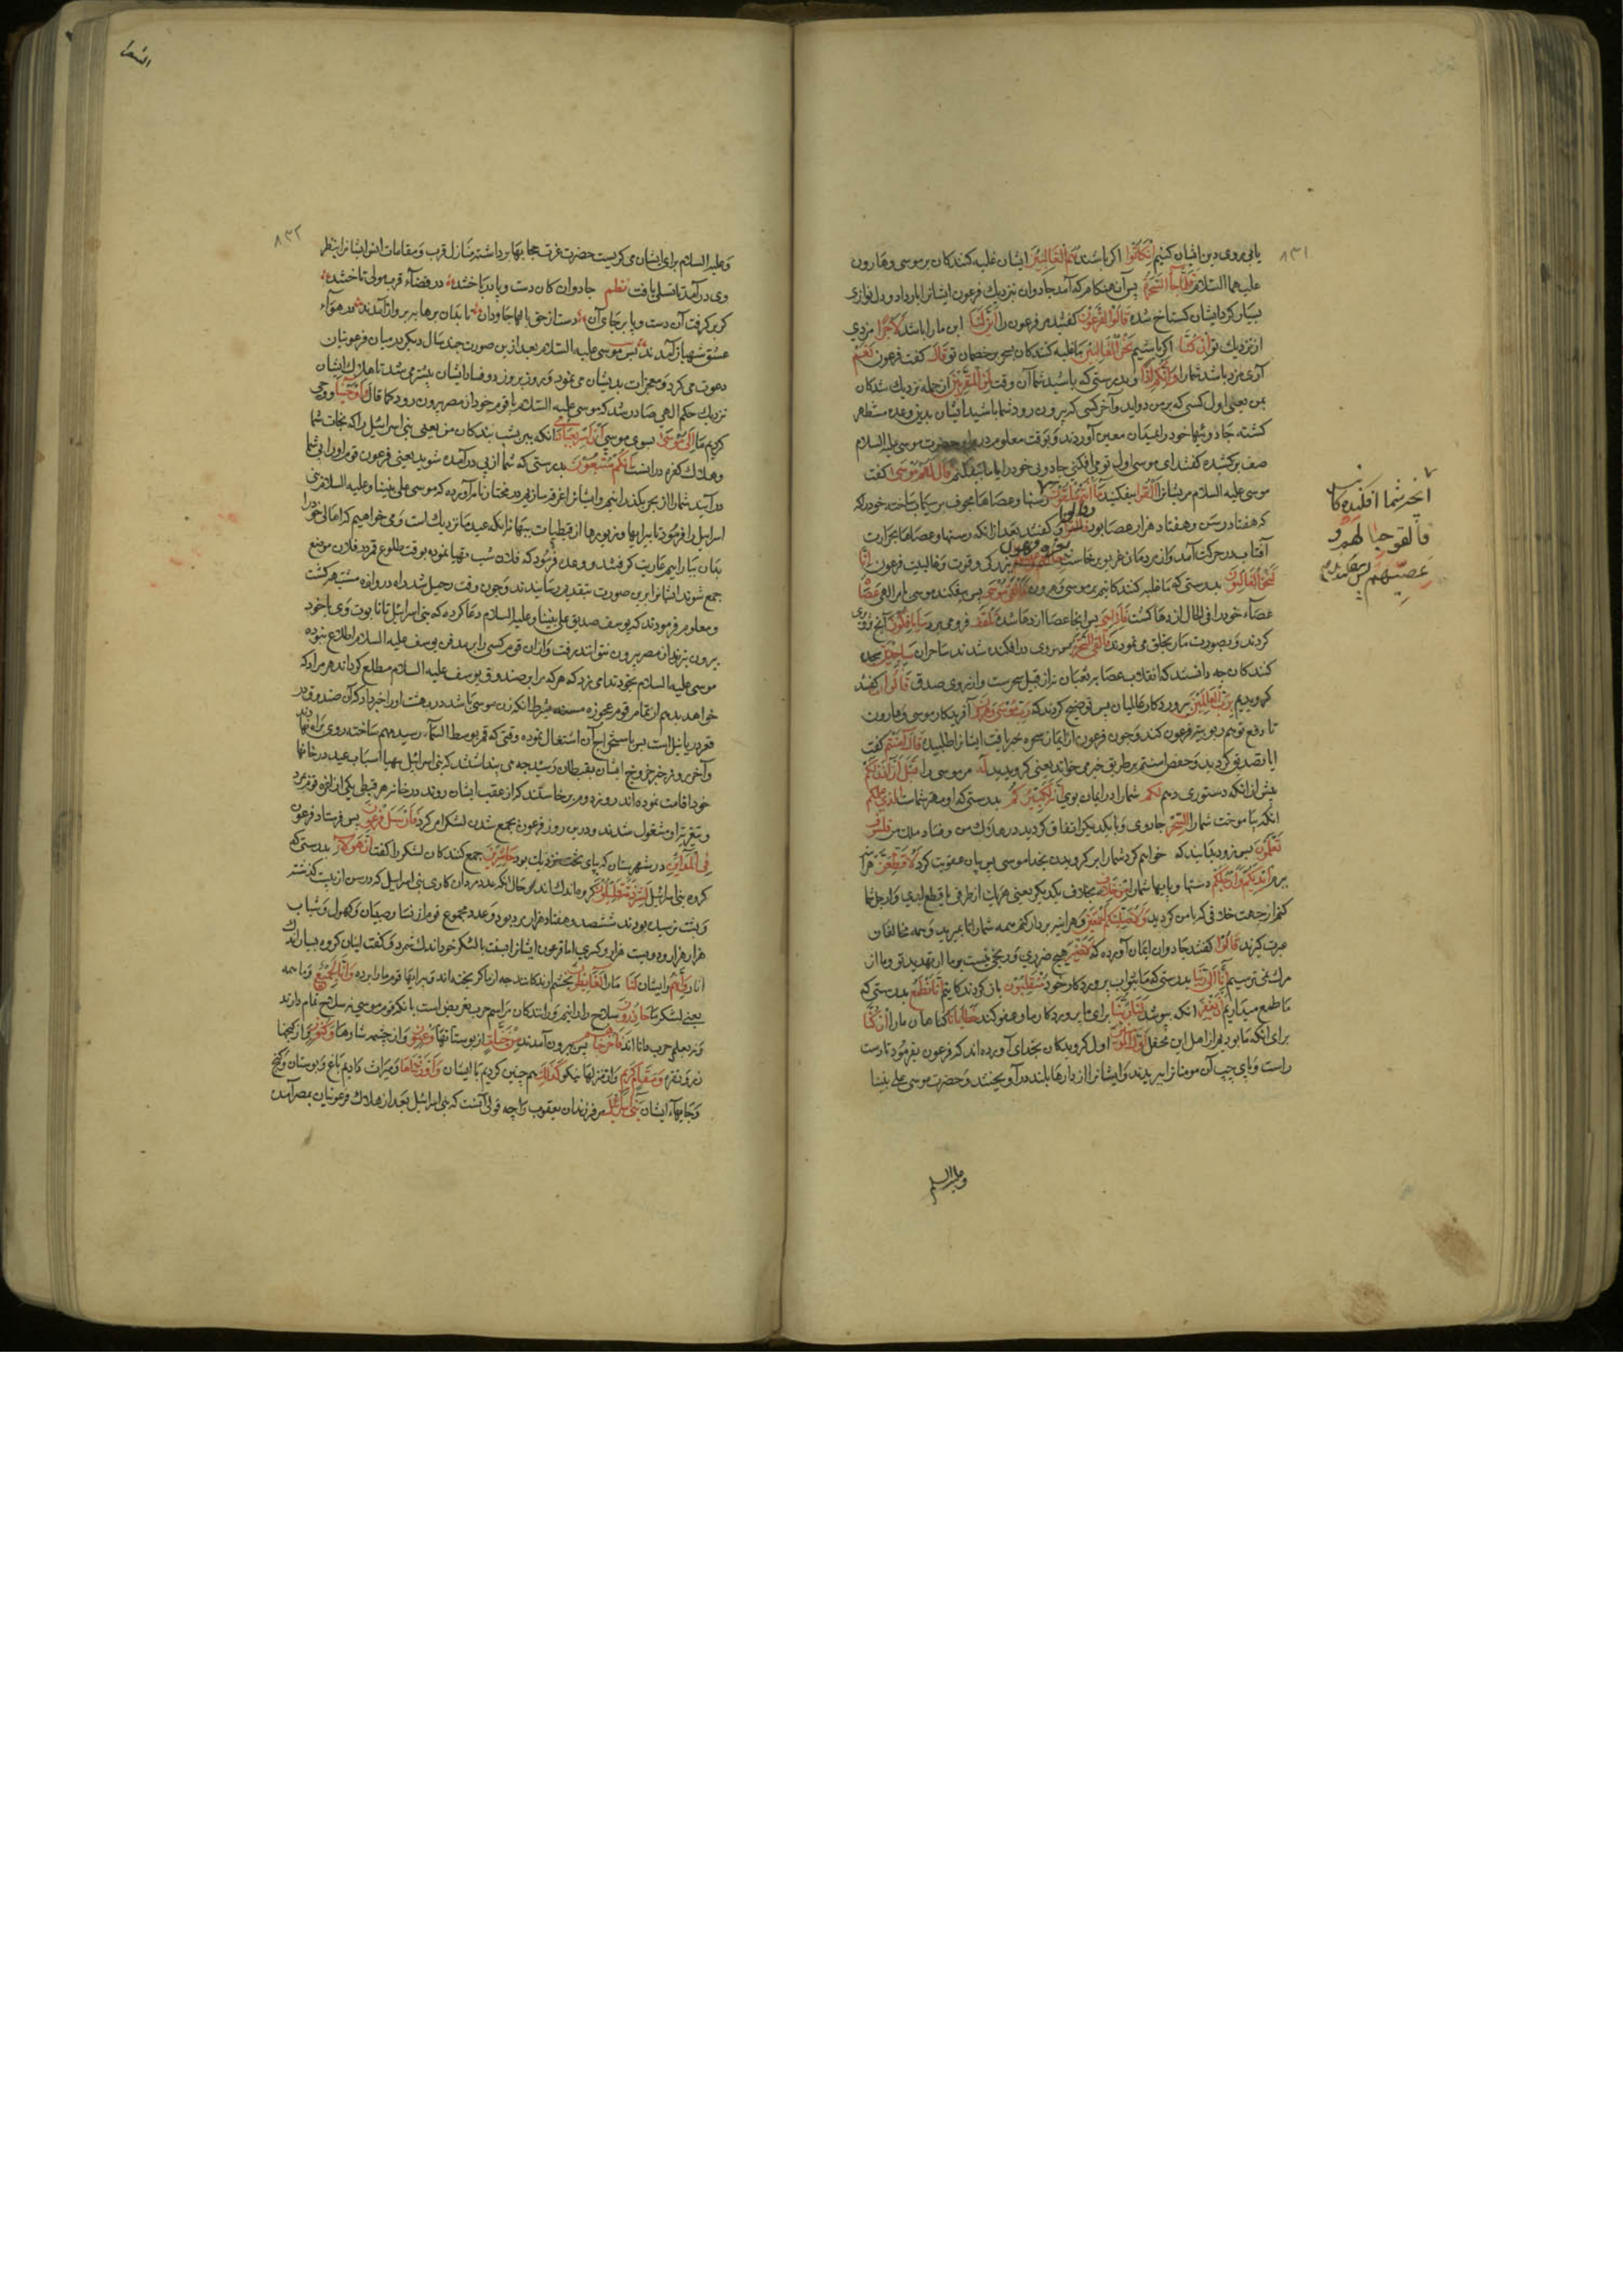 ۸۳۱
یا پی روی دین ایشان کنیم ان کانوا اکر باشند هم الغالبین ایشان غلبه کنندکان بر موسی و هارون
علیهما السلام فلما جاء السحرة پس آن هنکام که آمد جادوان نزدیك فرعون ایشانرا بار داد و دل نوازی
بسیار کرد ایشان کستاخ شده قالوا لفرعون کفتند مر فرعون را ائن لنا این ما را باشد لاجرا مزدی
از نزدیك تو ان کنا اکر باشیم نحن الغالبین ما غلبه کنندکان بر خصمان تو قال کفت فرعون نعم
آری مزد باشد شما را وانکم اذا و بدرستی که باشید شما آن وقت لمن المقربین از جمله نزدیك شدکان
بمن یعنی اول کسی که بر من دراید و آخر کسی که بیرون رود شما باشید ایشان بدین وعده مستظهر
کشته جادوئیها خود را بمیدان معین آوردند و بوقت معلوم در برابر حضرت موسی علیه السلام
صف برکشیده کفتند ای موسی اول تو می افکنی جادویی خود را یا ما بیفکنیم قال لهم موسی کفت
موسی علیه السلام مریشانرا القوا بیفکنید ما انتم ملقون رسنها و عصاها مجوف بر سیماب ساخته خود را که
که هفتاد رسن و هفتاد هزار عصا بود وقالوا و کفتند بعد از انکه رسنها و عصاها بحرارت
آفتاب در حرکت آمد و از مردمان غریو برخاست بعزة فرعون بزرکی و قوت و غالبیت فرعون انا
لنحن الغالبون بدرستی که ما غلبه کنندکانیم بر موسی و هرون فالقی موسی پس بیفکند موسی بامر الهی عصاه
عصاء خود را فی الحال اژدها کشت فاذا هی پس انجا عصا اژدها شده تلقف فرو می برد ما یافکون آنچ تزویر
کردند و بصورت مار بخلق می نمودند فالقی السحرة پس بروی در افکنده شدند ساحران ساجدین سجده
کنندکان چه دانستند که انقلاب عصا بر ثعبان نه از قبیل سحرست و از روی صدق قالوا امنا کفتند
کرویدیم برب العالمین پرورد کار عالمیان پس توضیح کردند که رب موسی و هرون آفریدکار موسی و هارون
تا دفع توهم ربوبیت فرعون کند و چون فرعون از ایمان سحره خبر یافت ایشانرا طلبیده قال آمنتم کفت
ایا تصدیق کردید و حفص امنتم بر طریق خبر می خواند یعنی کرویدید له مر موسی را قبل ان آذن لکم
پیش از انکه دستوری دهم لکم شما را در ایمان بوی انه لکبیرکم بدرستی که او مهتر شماست الذی علمکم
انکه بیاموخت شما را السحر جادوی و با یکدیکر اتفاق کردید در هلاك من و فساد ملك من فلسوف
تعلمون پس زود بدانید که خواهم کرد شما را بر کرویدن بخدا موسی بی پایان عقوبت کرد لاقطعن هر آینه
ببرم ایدیکم وارجلکم دستها و پایها شما را من خلاف بخلاف یکدیکر یعنی هر یك از طرفی یا بقطع ایدی و ارجل شما
کنم از جهت خلافی که با من کردید ولاصلبنکم اجمعین و هر اینه بر دار کنم همه شما را تا بمیرید و همه مخالفان
عبرت کیرند قالوا کفتند جادوان ایمان آورده که لا ضیر هیچ ضرری و رنجی نیست بر ما از تهدید تو و ما از
مرك نمی ترسیم انا الی ربنا بدرستی که ما بثواب پرورد کار خود منقلبون باز کردندکانیم انا نطمع بدرستی که
ما طمع میداریم ان یغفر انکه بپوشد لنا ربنا برای ما پرورد کار ما و عفو کند خطایانا کناهان ما را ان کنا
برای انکه ما بودیم از اهل این محفل اول المؤمنین اول کرویدکان بخدای آورده اند که فرعون بفرمود تا دست
راست و پای چپ آن مومنانرا ببریدند و ایشانرا از دارها بلند درآویختند و حضرت موسی علی نبینا
و علیه السلم
انچه شما افکنیده کانید
فالقوا حبالهم و
عصیهم پس بیفکندند
السعرا
۸۳۲
و علیه السلام برای ایشان می کریست حضرت عزت حجابها برداشته منازل قرب و مقامات انس ایشانرا بنظر
وی در آمد تا تسلی یافت نظم جادوان کان دست و پا در باختند در فضاء قرب مولی تاختند
کر برکرفت آن دست و پا بر جای آن رست از حق بالها جاودان تا بدان پرها بپرواز آمدند در هواء
عشق شهباز آمدند پس موسی علیه السلام بعد از ین صورت چند سال دیکر در میان فرعونیان
دعوت می کرد و معجزات بدیشان می نمود و روز بروز در فساد ایشان بیشتر می شد تا هلاك ایشان
نزدیك حکم الهی صادر شد که موسی علیه السلام با قوم خود از مصر بیرون رود کما قال واوحینا و وحی
کردیم ما الی موسی بسوی موسی ان اسر بعبادی انکه ببر بشب بندکان من یعنی بنی اسرائیل را که نجات شما
و هلاك کفره در انست انکم متبعون بدرستی که شما از پی در آمده شوید یعنی فرعون و قوم او از پی شما
در آیند شما را از بحر بکذرانیم و ایشانرا غرق سازیم در مختار نامه آورده که موسی علی نبینا و علیه السلام بنی
اسرائیل را فرمود تا پیرایها و زیورها از قبطیات بهانه انکه عید ما نزدیك است و می خواهیم که اهالی خود را
بدان بیاراییم عاریت کرفتند و وعده فرمود که فلان شب مهیا نموده بوقت طلوع قمر در فلان موضع
جمع شوند ایشانرا برین صورت بتقدیم رسانیدند و چون وقت رحیل شد راه دروازه مشتبه کشت
و معلوم فرمودند که یوسف صدیق علی نبینا و علیه السلام دعا کرده که بنی اسرائیل تا تابوت وی با خود
بیرون نبرند از مصر بیرون نتوانند رفت و از ان قوم کسی را بر مدفن یوسف علیه السلام اطلاع نبوده
موسی علیه السلام بخود ندا می زد که هر که مرا بر صندوق یوسف علیه السلام مطلع کرداند هر مراد که
خواهد بدهم از تمام قوم عجوزه بشرط انکه زن موسی باشد در بهشت او را خبر داد که آن صندوق در
قعر دریا نیل است پس باستخراج آن اشتغال نموده وقتی که قمر بوسط السماء رسید مهم ساخته روی براه نهادند
و آخر روز خبر خروج ایشان بقبطیان رسید چه می پنداشتند که بنی اسرائیل بتهیا اسباب عید در خانها
خود اقامت نموده اند روز دوم برخاستند که از عقب ایشان روند در خانه هر قبطی یکی از اعزه قوم بمرد
و بتعزیه او مشغول شدند و درین روز فرعون بجمع شدن لشکر امر کرد فارسل فرعون پس فرستاد فرعون
فی المداین در شهرستان که بپای تخت نزدیك بود حاشرین جمع کنندکان لشکر را کفت ان هؤلاء بدرستی که
کروه بنی اسرائیل لشرذمة قلیلون کروه اندك اند و حال انکه عدد مردان کاری بنی اسرائیل که در سن از بیست کذشته
و بشصت نرسیده بودند ششصد و هفتاد هزار مرد بود و عدد مجموع قوم از نسا و صبیان و کهول و شباب
هزار هزار و دویست هزار و کسری اما فرعون ایشانرا نسبت بالشکر خود اندك شمرد و کفت اینان کروه بسیار اندك
اند وانهم و ایشان لنا ما را لغائظون بخشم آرندکانند چه از ما کریخته اند و پیرایها قوم ما را برده وانا لجمیع و ما همه
یعنی لشکر ما حاذرون سلاح دارانیم و دانندکان مراسم حرب تعریض است بانکه قوم موسی نه سلاح تمام دارند
و نه بعلم حرب دانا اند فاخرجناهم پس بیرون آمدند من جنات از بوستانها وعیون و از چشمه سارها وکنوز و از کنجها
زر و نقره ومقام کریم و از منزلها نیکو کذلك هم چنین کردیم با ایشان واورثناها و میراث دادیم باغ و بوستان و کنج
و جایهاء ایشان بنی اسرائیل مر فرزندان یعقوب را چه قولی آنست که بنی اسرائیل بعد از هلاك فرعونیان بمصر آمدند